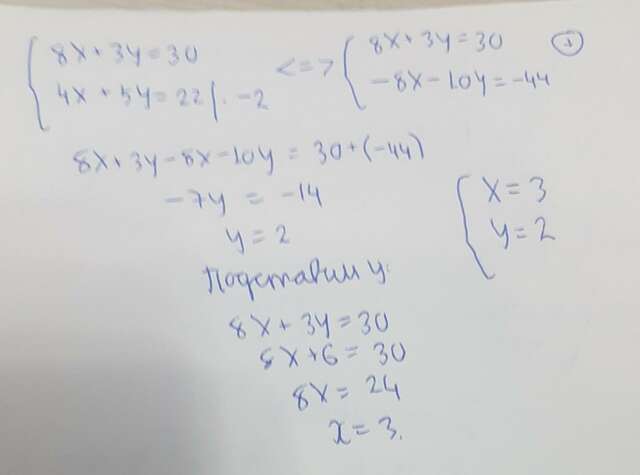 8x + 3y = 30
4x + 5y = 22 | · -2
<=>
8x + 3y = 30
-8x - 10y = -44
8x + 3y - 8x - 10y = 30 + (-44)
-7y = -14
y = 2
x = 3
y = 2
Подставим y:
8x + 3y = 30
8x + 6 = 30
8x = 24
x = 3.